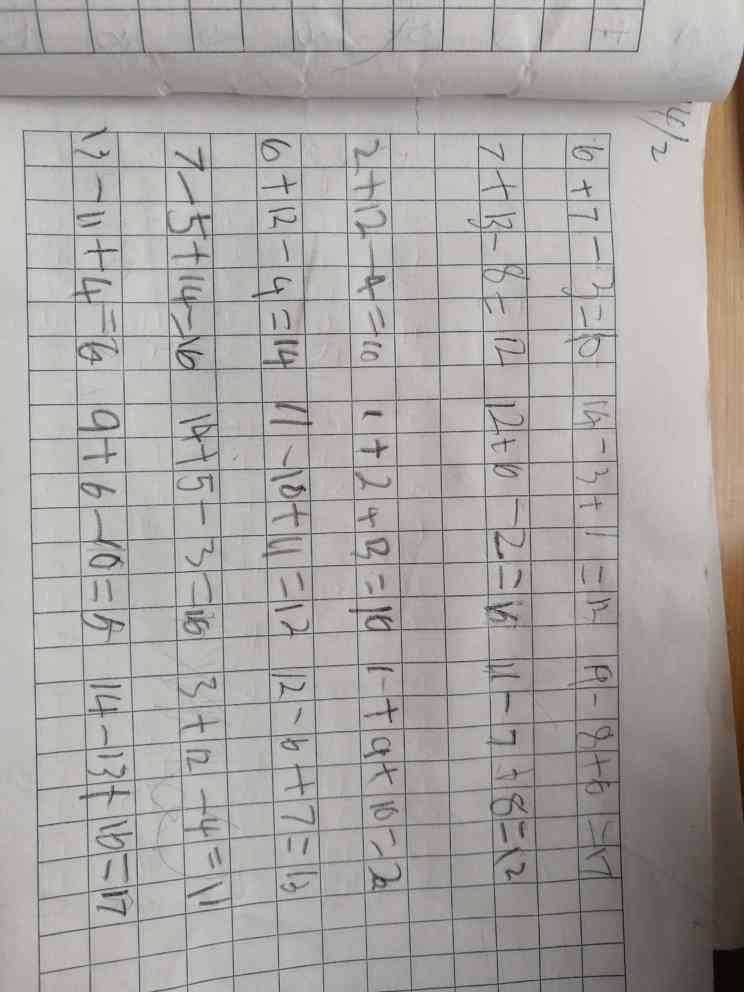 6+7-3=10 14-3+1=12 19-8+6=17
7+13-8=12 12+6-2=16 11-7+8=12
2+12-4=10 1+2+13=16 1+9+10=20
6+12-4=14 11-10+11=12 12-6+7=13
7-5+14=16 14+5-3=16 3+12-4=11
13-11+4=6 9+6-10=5 14-13+16=17